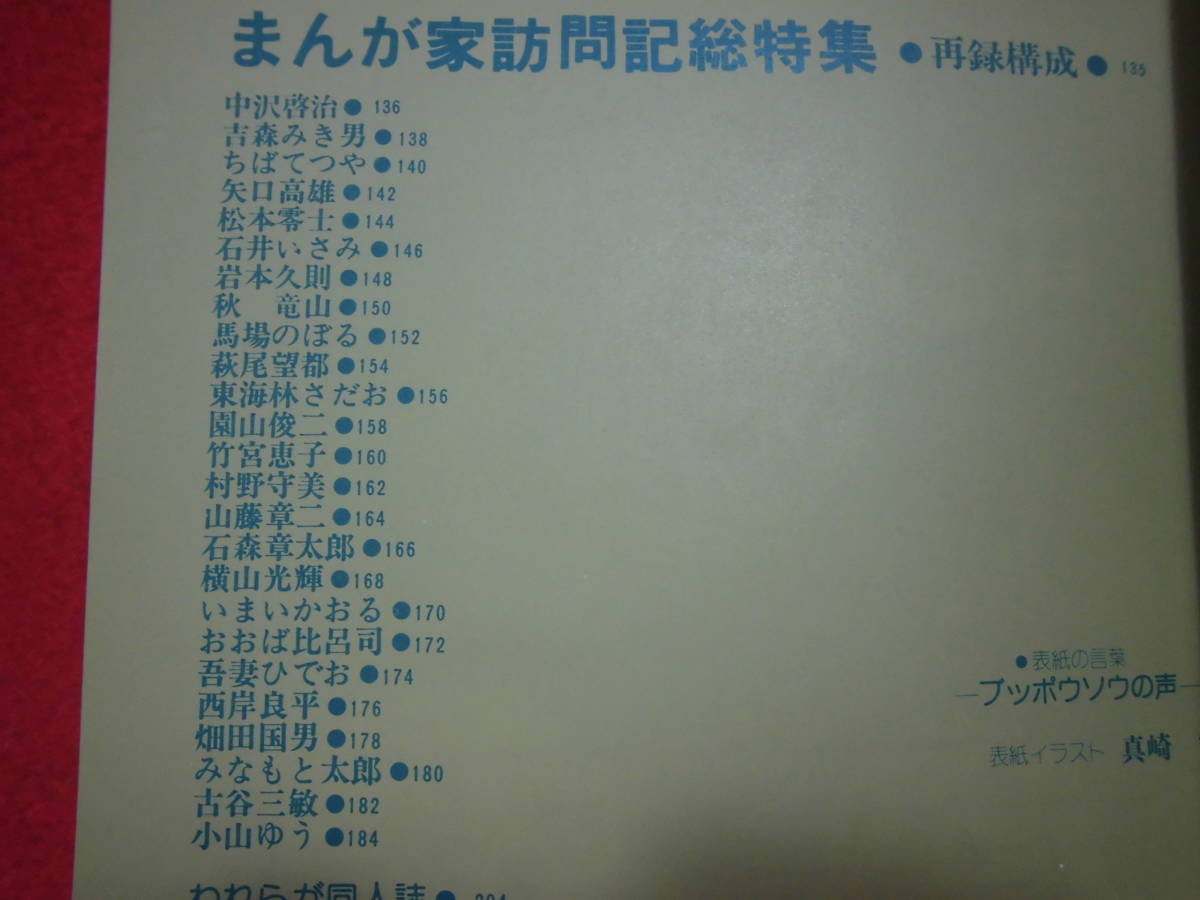 まんが家訪問記総特集 ●再録構成● 135
中沢啓治●136
吉森みき男●138
ちばてつや●140
矢口高雄●142
松本零士●144
石井いさみ●146
岩本久則●148
秋　竜山●150
馬場のぼる●152
萩尾望都●154
東海林さだお●156
園山俊二●158
竹宮恵子●160
村野守美●162
山藤章二●164
石森章太郎●166
横山光輝●168
いまいかおる●170
おおば比呂司●172
吾妻ひでお●174
西岸良平●176
畑田国男●178
みなもと太郎●180
古谷三敏●182
小山ゆう●184
われらが同人誌●
●表紙の言葉
―ブッポウソウの声―
表紙イラスト 真崎